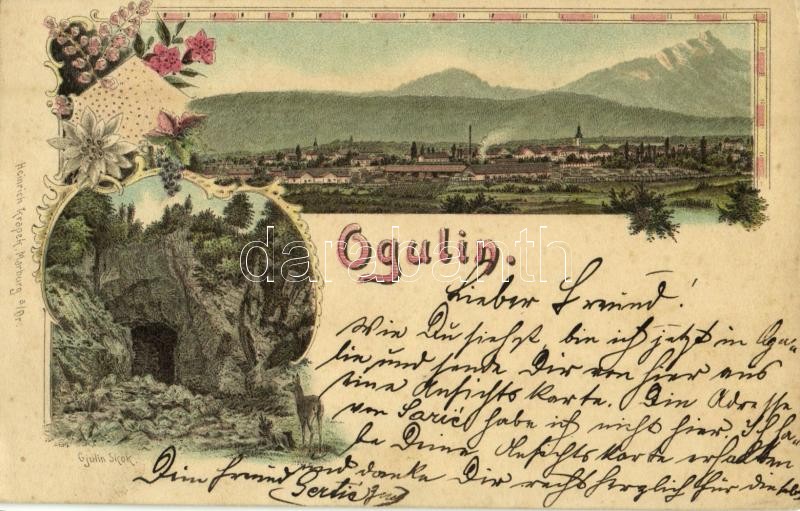 Ogulin.
Lieber Freund!
Wie Du siehst, bin ich jetzt in Ogu-
lin und sende Dir von hier aus
eine Ansichtskarte. Die Adresse
von Sarić habe ich nicht hier. Ich ha-
be Deine Ansichtskarte erhalten
und danke Dir recht herzlich für dieselbe
Dein Freund
Gjulin Skok.
Heinrich Krapek, Marburg a/Dr.
darabanth.com